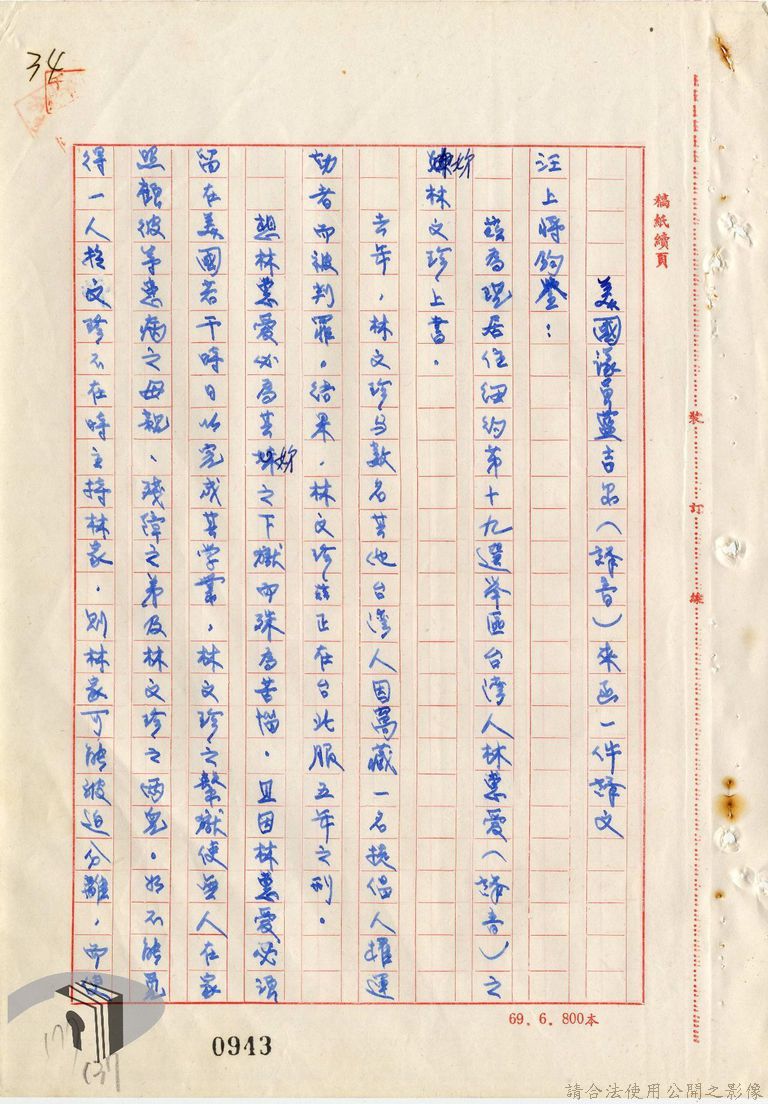 34
稿紙續頁
裝
訂
線
美國議員藍吉昂（譯音）來函一件譯文
汪上將鈞鑒：
茲為現居住紐約第十九選舉區台灣人林惠愛（譯音）之
妳林文珍上書。
去年，林文珍与数名其他台灣人因窩藏一名提倡人權運
动者而被判罪。结果，林文珍茲正在台北服五年之刑。
想林惠愛必為其妳之下獄而殊為苦惱。且因林惠愛必須
留在美國若干時日以完成其学業，林文珍之繫獄使無人在家
照顧彼等患病之母親、殘障之弟及林文珍之兩兒。如不能覓
得一人於文珍不在時主持林家，則林家可能被迫分離，而使
69. 6. 800本
0943
137
請合法使用公開之影像